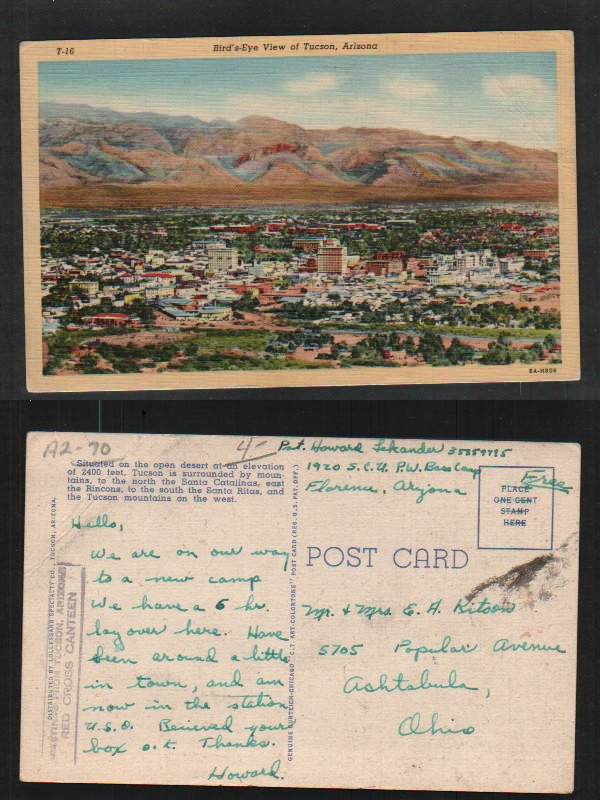 T-16
Bird's-Eye View of Tucson, Arizona
8A-H806
A2-70
4/-
Situated on the open desert at an elevation
of 2400 feet, Tucson is surrounded by moun-
tains, to the north the Santa Catalinas, east
the Rincons, to the south the Santa Ritas, and
the Tucson mountains on the west.
Pvt. Howard
1920 S.C.U. P.W. Base Camp
Florence, Arizona
Free
PLACE
ONE CENT
STAMP
HERE
POST CARD
Hello,
We are on our way
to a new camp
We have a 6 hr.
layover here. Have
been around a little
in town, and am
now in the station
U.S.O. Recieved your
box o.k. Thanks.
Howard.
Mr. & Mrs E. A. Kitson
5705 Popular Avenue
Ashtabula,
Ohio
DISTRIBUTED BY LOLLESGARD SPECIALTY CO., TUCSON, ARIZONA.
FROM TUCSON, ARIZONA
RED CROSS CANTEEN
GENUINE CURTEICH-CHICAGO "C.T. ART-COLORTONE" POST CARD (REG. U.S. PAT. OFF.)